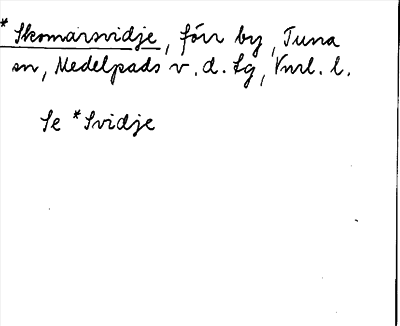 * Skomarsvidje, förr by, Tuna
sn, Medelpads v. d. Lg, Vnrl. l.
Se * Svidje